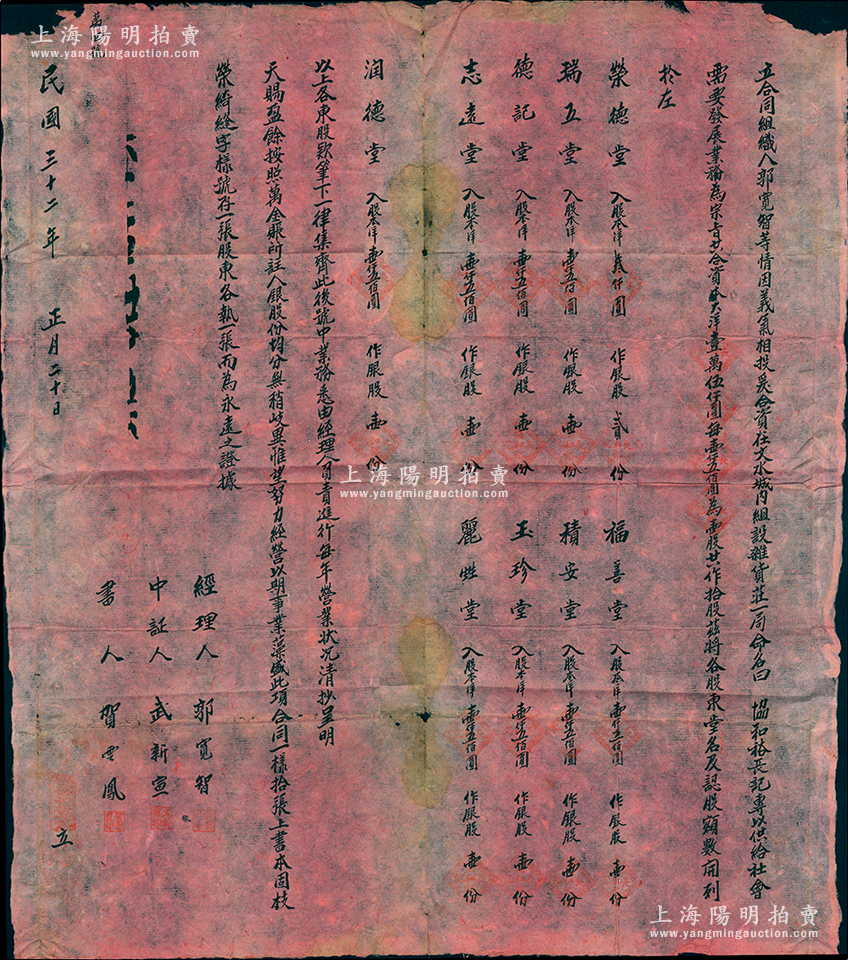 立合同組織人郭寬智等情因義氣相投爰合資在文水城内組設雜貨莊一局命名曰 協和裕長記專以供給社會
需要發展業務為宗旨共合資本大洋壹萬伍仟圓每壹仟五佰圓為壹股共作拾股茲將各股東堂名及認股額數開列
於左
榮德堂 入股本洋叁仟圓 作銀股貳份 福善堂 入股本洋壹仟五佰圓 作銀股壹份
瑞五堂 入股本洋壹仟五佰圓 作銀股壹份 積安堂 入股本洋壹仟五佰圓 作銀股壹份
德記堂 入股本洋壹仟五佰圓 作銀股壹份 玉珍堂 入股本洋壹仟五佰圓 作銀股壹份
志遠堂 入股本洋壹仟五佰圓 作銀股壹份 麗生堂 入股本洋壹仟五佰圓 作銀股壹份
潤德堂 入股本洋壹仟五佰圓 作銀股壹份
以上各東股欵筆下一律集齊此後號中業務悉由經理人負責進行每年營業狀況清抄呈明
天賜盈餘按照萬金賬所註人銀股份均分無稍歧異惟望努力經營以期事業蒸盛此項合同一樣拾張上書本固枝
榮騎縫字樣號存一張股東各執一張而為永遠之證據
經理人 郭寬智
中証人 武新宣
書人 賀雲鳳
民國三十二年 正月二十日 立
上海陽明拍賣
www.yangmingauction.com
上海陽明拍賣
www.yangmingauction.com
上海陽明拍賣
www.yangmingauction.com